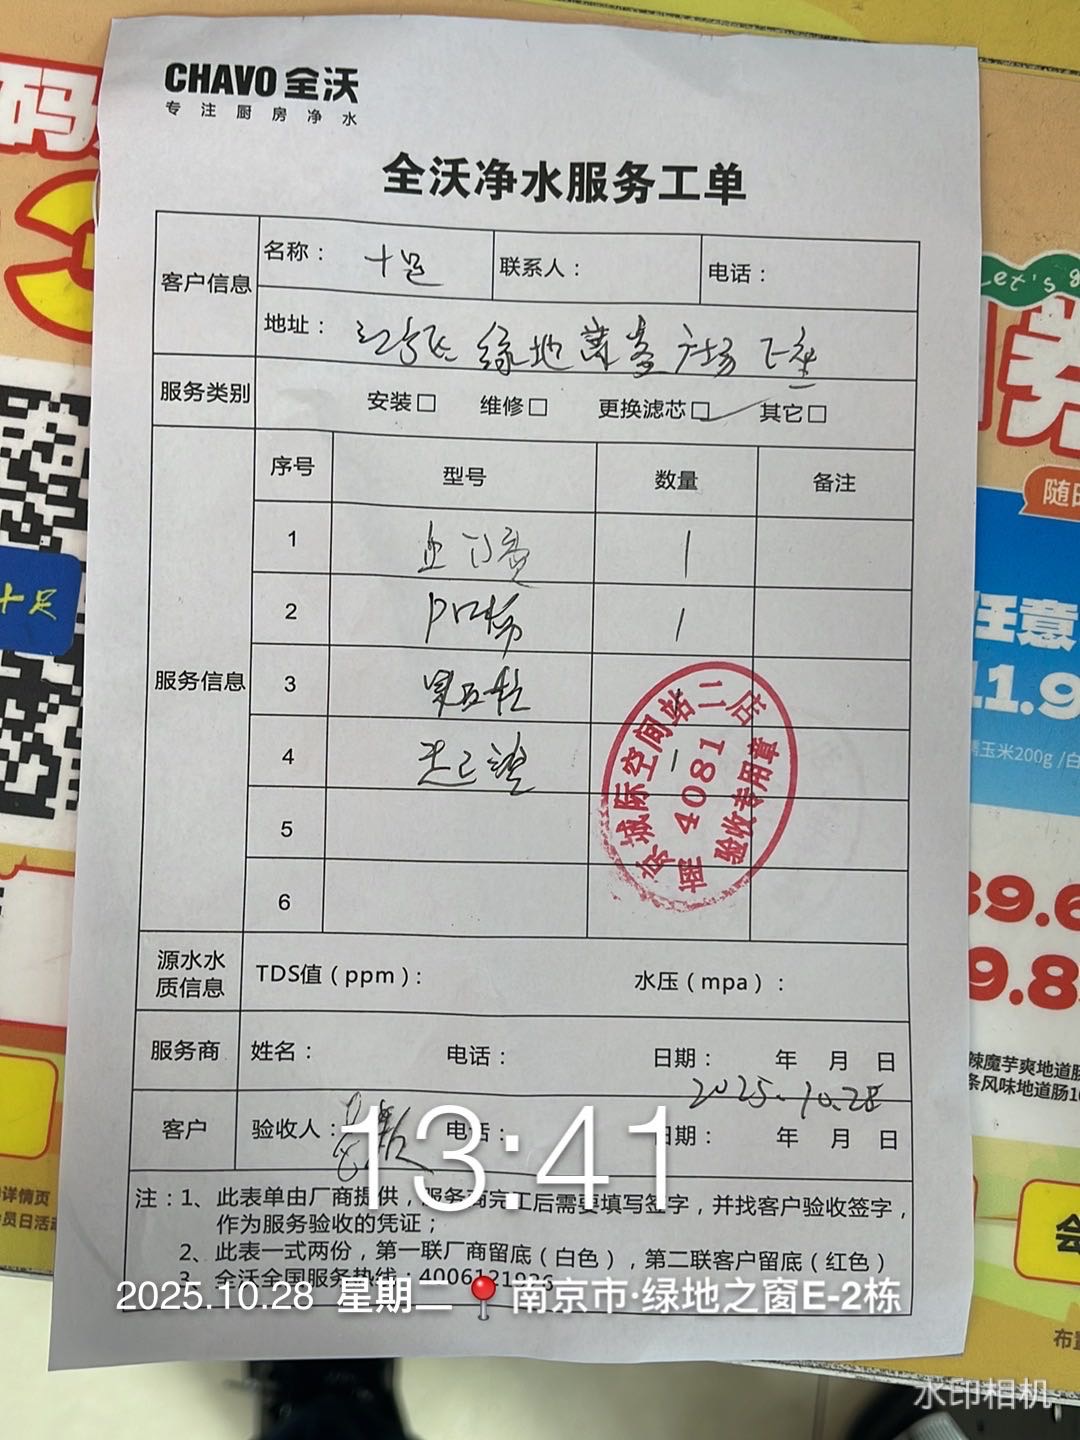 CHAVO 全沃
专注厨房净水
全沃净水服务工单
客户信息
名称： 十足
联系人：
电话：
地址： 绿地 广场
服务类别
安装□ 维修□ 更换滤芯□ 其它□
服务信息
序号 型号 数量 备注
1 1
2 1
3
4 1
5
6
城际空间站二店
4081
验收专用章
源水水质信息
TDS值（ppm）：
水压（mpa）：
服务商
姓名： 电话： 日期： 年 月 日
2025.10.28
客户
验收人： 电话： 日期： 年 月 日
注：1、此表单由厂商提供，服务商完工后需要填写签字，并找客户验收签字，
作为服务验收的凭证；
2、此表一式两份，第一联厂商留底（白色），第二联客户留底（红色）
3、全沃全国服务热线：4006121936
13:41
2025.10.28 星期二 南京市·绿地之窗E-2栋
水印相机
码
十足
Let's
券
任意
11.9
玉米200g
39.6
9.8
辣魔芋爽地道肠
条风味地道肠
详情页
员日活动